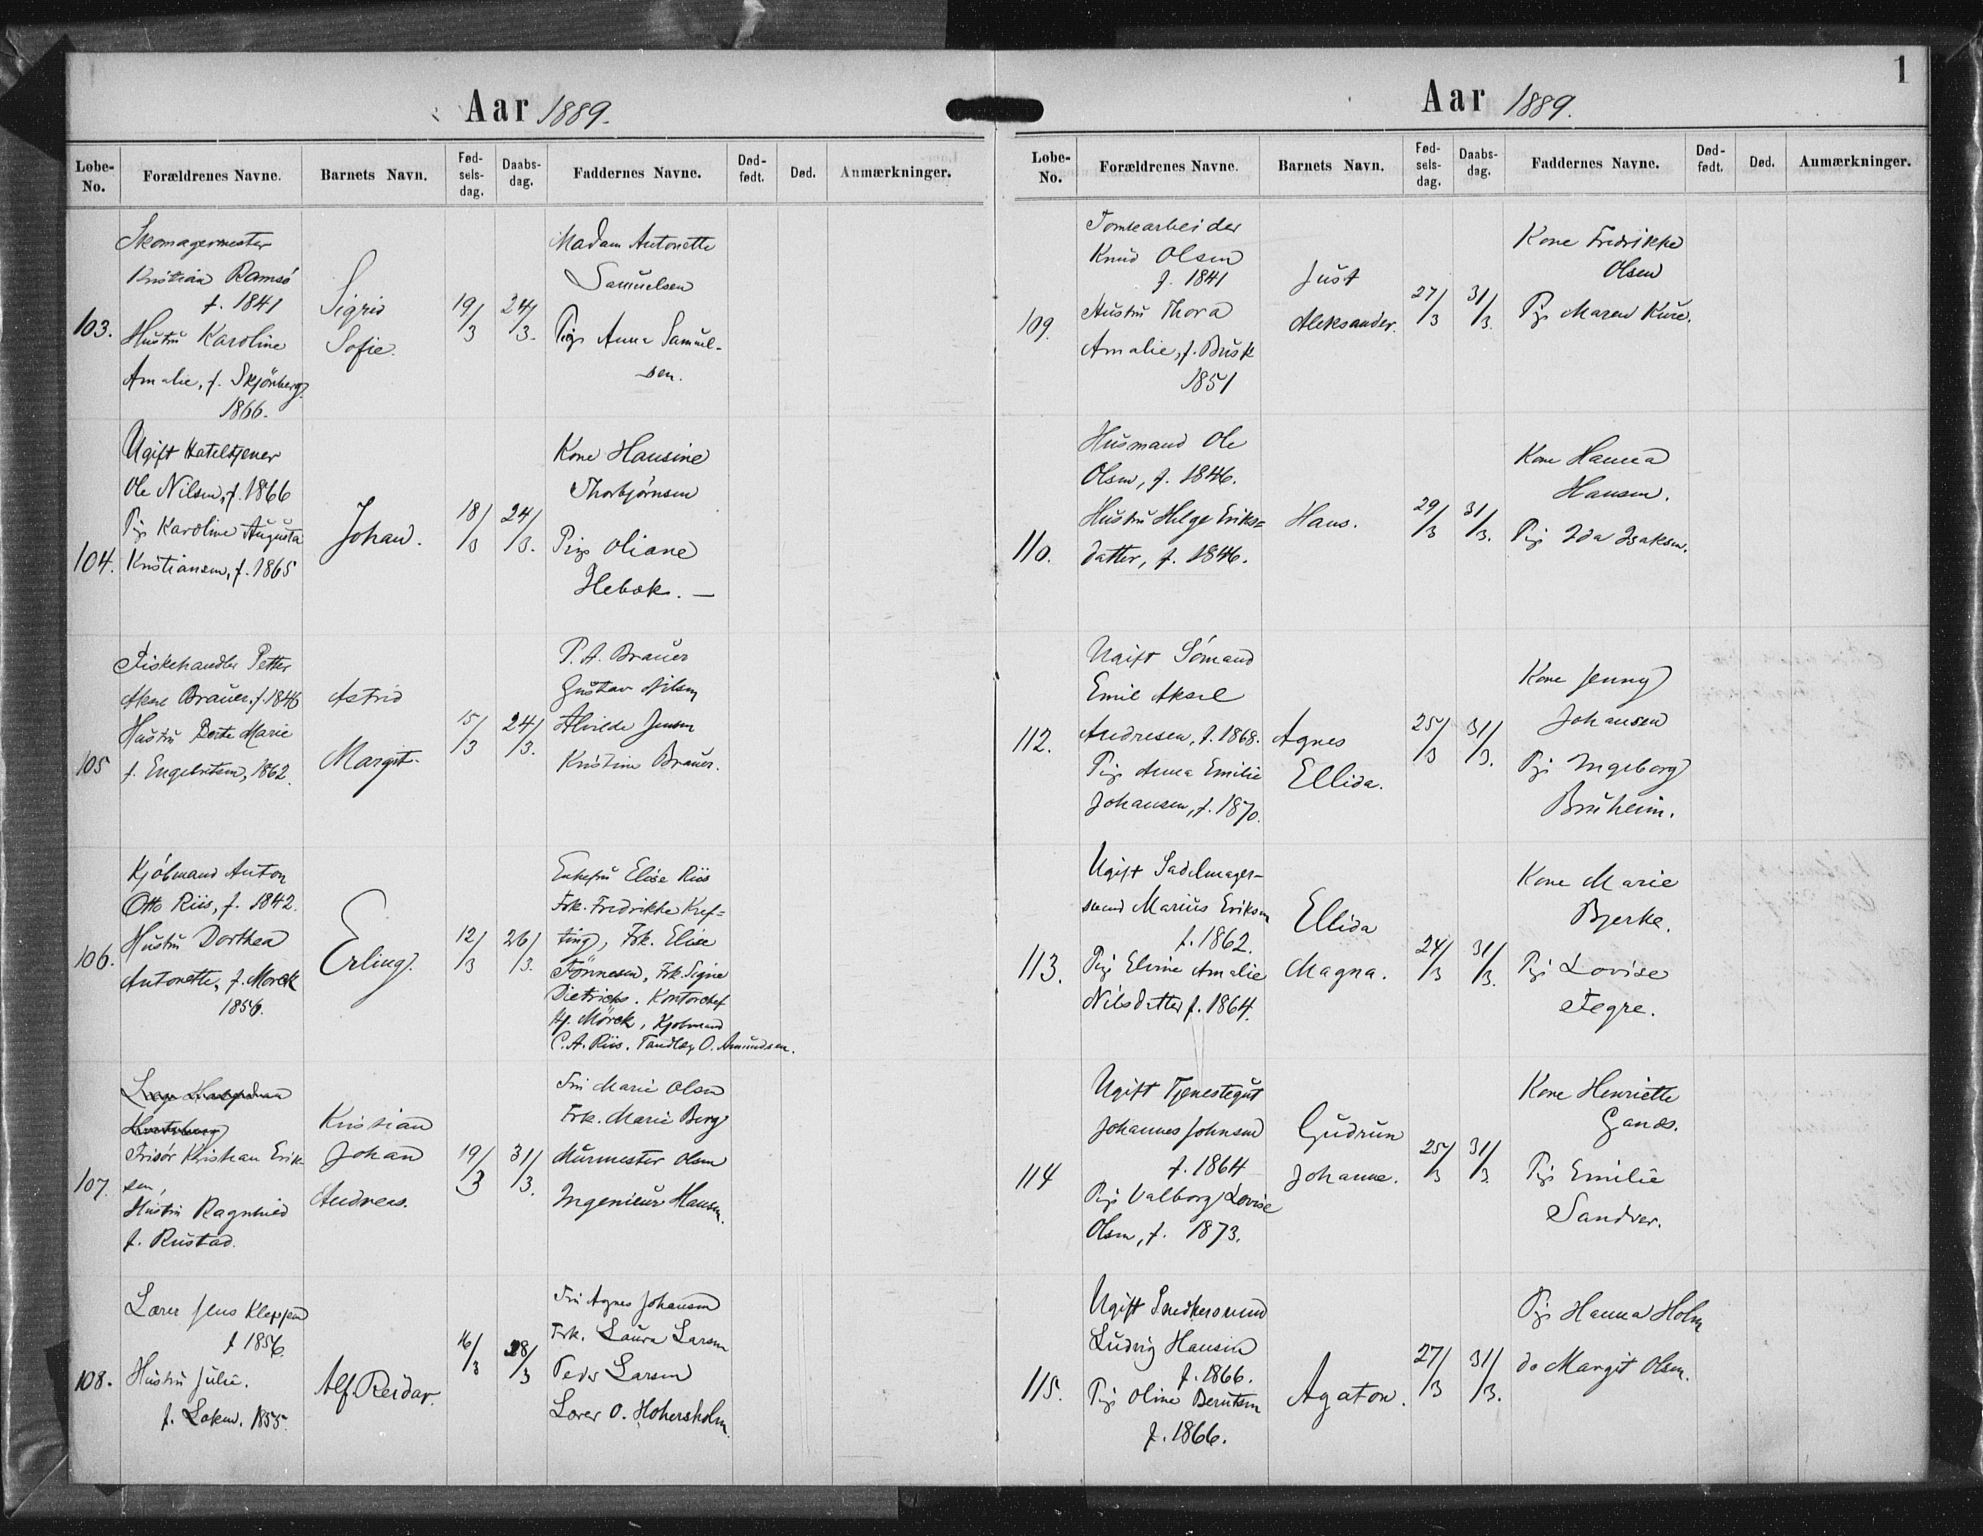 Aar 1889.
Løbe-No. Forældrenes Navne. Barnets Navn. Fød-sels-dag. Daabs-dag. Faddernes Navne. Død-født. Død. Anmærkninger.
103.
Skomagermester
Kristian Ramsö
f. 1841
Hustru Karoline
Amalie, f. Skjönberg
1866.
Sigrid
Sofie.
19/3
24/3.
Madam Antonette
Samuelsen
Pige Anna Samuel-
sen.
104.
Ugift Hoteltjener
Ole Nilsen, f. 1866
Pige Karoline Augusta
Kristiansen, f. 1865
Johan.
18/3
24/3.
Kone Hansine
Thorbjørnsen
Pige Oliane
Hebæk. —
105
Fiskehandler Petter
Aksel Brauer, f. 1846
Hustru Berte Marie
f. Engebretsen, 1862.
Astrid
Margit.
15/3
24/3.
P. A. Brauer
Gustav Nilsen
Alvilde Jensen
Kristine Brauer.
106.
Kjöbmand Anton
Otto Riis, f. 1842.
Hustru Dorthea
Antonette, f. Morck
1856.
Erling.
12/3
26/3.
Enkefru Elise Riis
Frk. Fredrikke Kref-
ting, Frk. Elise
Tönnesen, Frk. Signe
Dietrichs. Kontorchef
Hj. Mörck, Kjobmand
C. A. Riis. Tandlæge O. Amundsen.
107.
Frisör Kristian Erik-
sen,
Hustru Ragnhild
f. Rustad.
Kristian
Johan
Andreas.
19/3
31/3.
Fru Marie Olsen
Frk. Marie Berg
Murmester Olsen
Ingeniör Hansen.
108.
Lærer Jens Kleppen
f 1856.
Hustru Julie.
f. Loken. 1855.
Alf Reidar.
16/3
28/3
Fru Agnes Johansen
Frk. Laura Larsen
Peder Larsen
Lærer O. Hohersholm.
1
Aar 1889.
Løbe-No. Forældrenes Navne. Barnets Navn. Fød-sels-dag. Daabs-dag. Faddernes Navne. Død-født. Død. Anmærkninger.
109.
Tomtearbeider
Knud Olsen
f. 1841
Hustru Thora
Amalie, f. Busk
1851
Just
Aleksander.
27/3
31/3.
Kone Fredrikke
Olsen
Pige Maren Kure.
110.
Husmand Ole
Olsen, f. 1846.
Hustru Helge Eriks=
datter, f. 1846.
Hans.
29/3
31/3.
Kone Hanna
Hansen.
Pige Ida Isaksen.
112.
Ugift Sömand
Emil Aksel
Andresen, f. 1868.
Pige Anna Emilie
Johansen, f. 1870.
Agnes
Ellida.
25/3
31/3.
Kone Jenny
Johansen
Pige Ingeborg
Bruheim.
113.
Ugift Sadelmager-
svend Marius Eriksen
f. 1862.
Pige Elvine Amalie
Nilsdatter f. 1864.
Ellida
Magna.
24/3
31/3.
Kone Marie
Bjerke.
Pige Lovise
Tegre.
114
Ugift Tjenestegut
Johannes Johnsen
f. 1864
Pige Valborg Lovise
Olsen, f. 1873.
Gudrun
Johanne.
25/3
31/3
Kone Henriette
Ganes.
Pige Emilie
Sandver.
115.
Ugift Snedkersvend
Ludvig Hansen
f. 1866.
Pige Oline Berntsen
f. 1866.
Agaton.
27/3
31/3.
Pige Hanna Holm
do Margit Olsen.